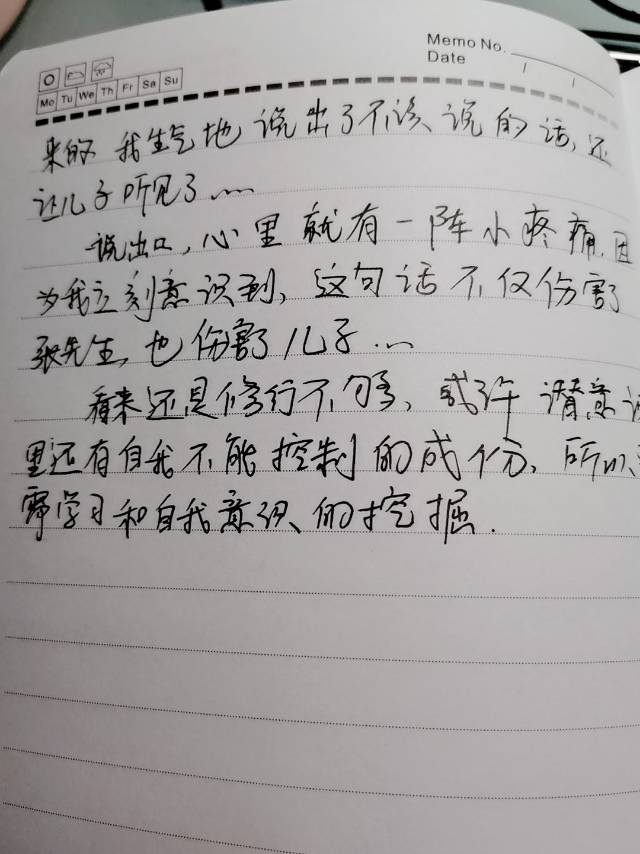 Memo No.
Date
Mo Tu We Th Fr Sa Su
来的 我生气地说出了不该说的话,还
让儿子听见了……
说出口,心里就有一阵小疼痛.因
为我立刻意识到,这句话不仅伤害了
张先生,也伤害了儿子…
看来还是修行不够,或许潜意识
里还有自我不能控制的成份、所以
需学习和自我意识的挖掘.